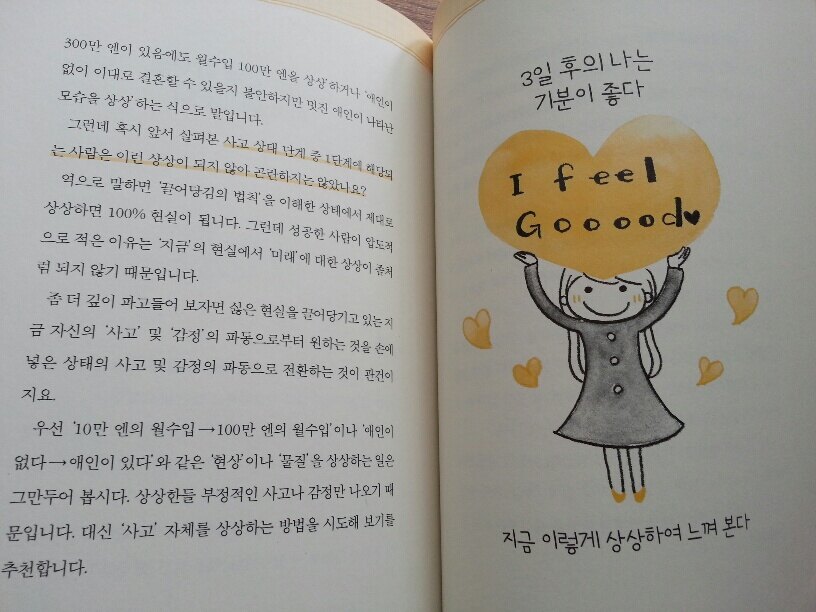 300만 엔이 있음에도 월수입 100만 엔을 상상'하거나 '애인이
없이 이대로 결혼할 수 있을지 불안하지만 멋진 애인이 나타난
모습을 상상'하는 식으로 말입니다.
그런데 혹시 앞서 살펴본 사고 상태 단계 중 1단계에 해당되
는 사람은 이런 상상이 되지 않아 곤란하지는 않았나요?
역으로 말하면 '끌어당김의 법칙'을 이해한 상태에서 제대로
상상하면 100% 현실이 됩니다. 그런데 성공한 사람이 압도적
으로 적은 이유는 '지금'의 현실에서 '미래'에 대한 상상이 좀처
럼 되지 않기 때문입니다.
좀 더 깊이 파고들어 보자면 싫은 현실을 끌어당기고 있는 지
금 자신의 '사고' 및 '감정'의 파동으로부터 원하는 것을 손에
넣은 상태의 사고 및 감정의 파동으로 전환하는 것이 관건이
지요.
우선 '10만 엔의 월수입→100만 엔의 월수입'이나 '애인이
없다→애인이 있다'와 같은 '현상'이나 '물질'을 상상하는 일은
그만두어 봅시다. 상상한들 부정적인 사고나 감정만 나오기 때
문입니다. 대신 '사고' 자체를 상상하는 방법을 시도해 보기를
추천합니다.
3일 후의 나는
기분이 좋다
I feel
Gooood♥
지금 이렇게 상상하여 느껴 본다